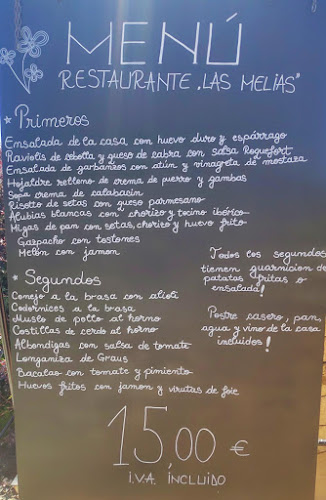 MENÚ
RESTAURANTE "LAS MELIAS"
* Primeros
Ensalada de la casa con huevo duro y espárrago
Raviolis de cebolla y queso de cabra con salsa Roquefort
Ensalada de garbanzos con atún y vinagreta de mostaza
Hojaldre relleno de crema de puerro y gambas
Sopa crema de calabacín
Risotto de setas con queso parmesano
Alubias blancas con chorizo y tocino ibérico
Migas de pan con setas, chorizo y huevo frito
Gazpacho con tostones
Melón con jamon
* Segundos
Conejo a la brasa con alioli
Codornices a la brasa
Muslo de pollo al horno
Costillas de cerdo al horno
Albondigas con salsa de tomate
Longaniza de Graus
Bacalao con tomate y pimiento
Huevos fritos con jamon y virutas de foie
Todos los segundos
tienen guarnicion de
patatas fritas o
ensalada!
Postre casero, pan,
agua y vino de la casa
incluidos!
15.00 €
I.V.A. INCLUIDO